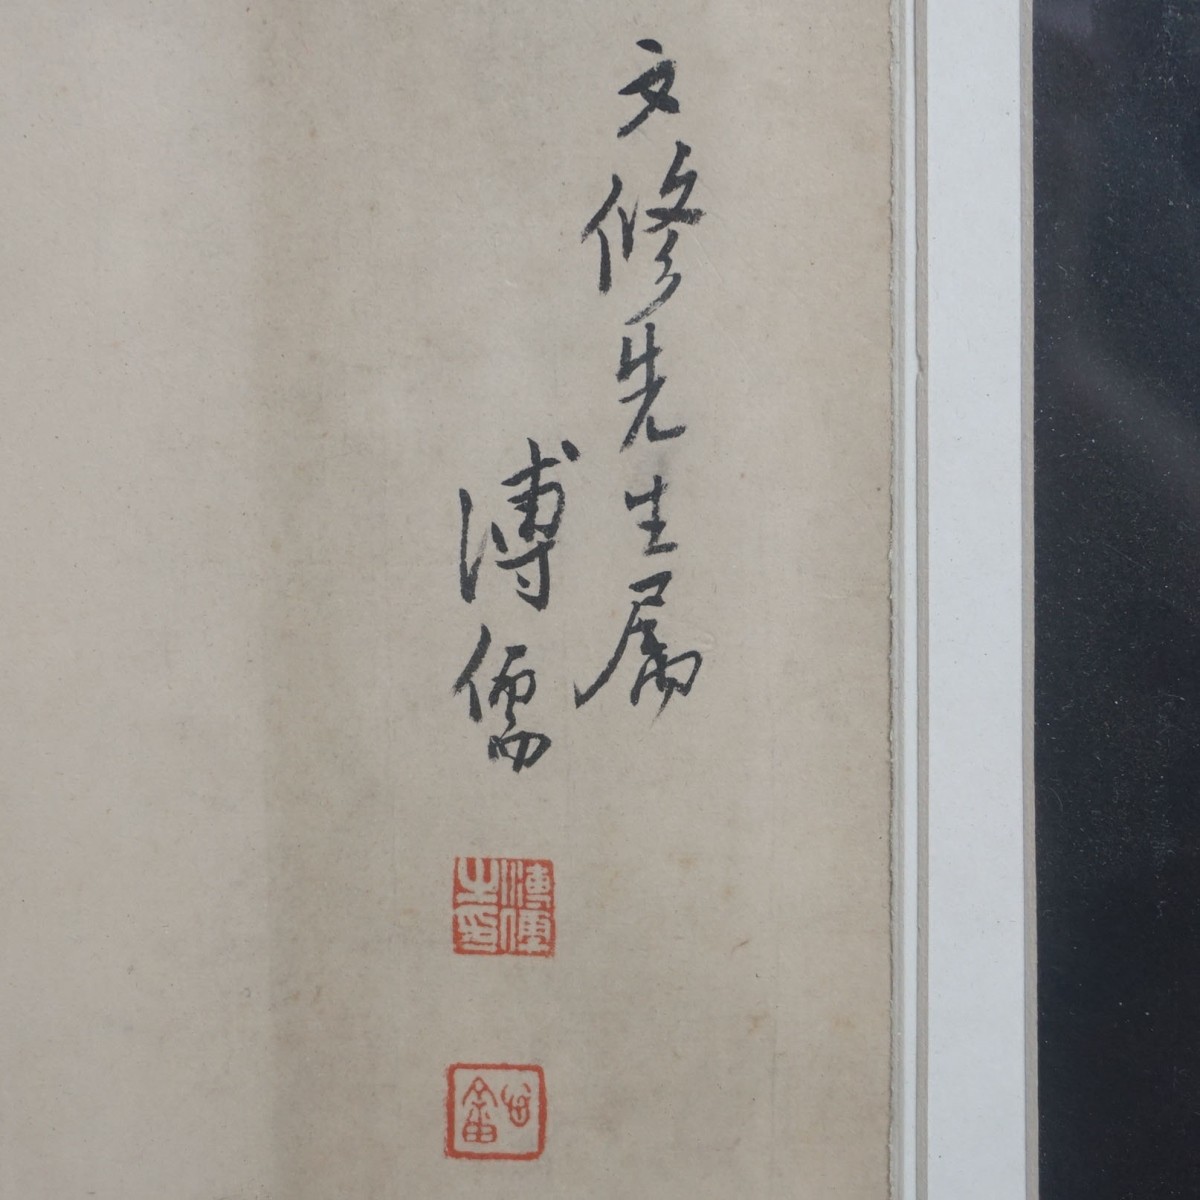 文修先生属
溥儒
溥儒之印